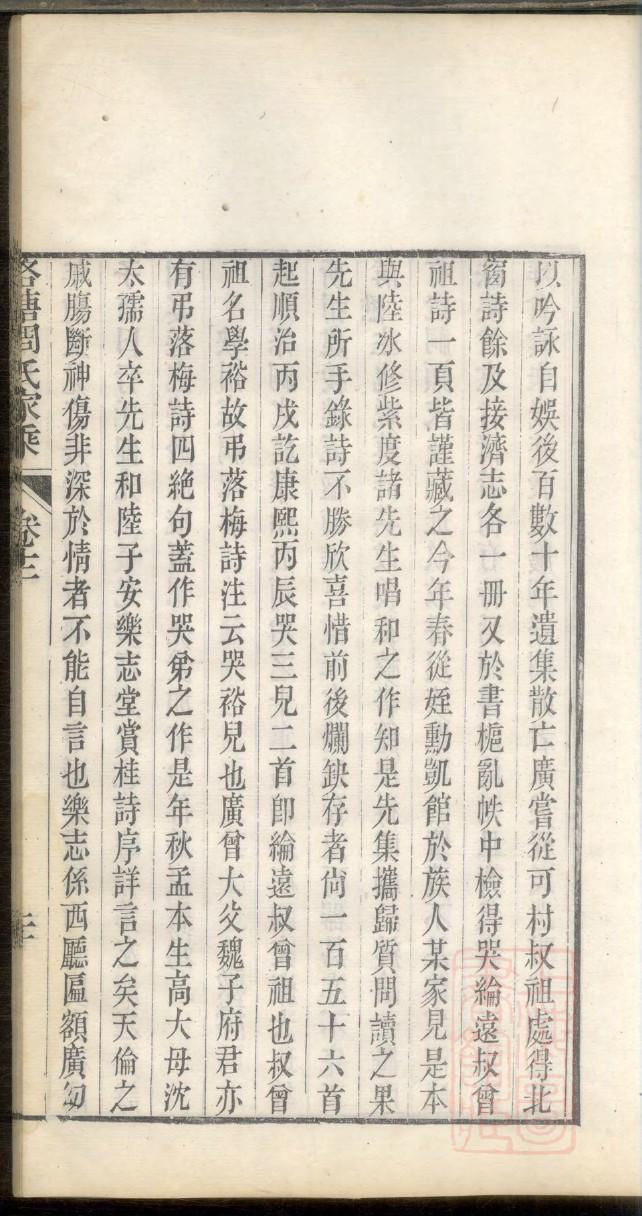 以吟詠自娛後百數十年遺集散亡廣嘗從可村叔祖處得北
窗詩餘及接濟志各一冊又於書樝亂帙中檢得哭綸遠叔曾
祖詩一頁皆謹藏之今年春從姪勳凱館於族人某家見是本
與陸冰修紫度諸先生唱和之作知是先集攜歸質問讀之果
先生所手錄詩不勝欣喜惜前後爛缺存者尙一百五十六首
起順治丙戌訖康熙丙辰哭三兒二首卽綸遠叔曾祖也叔曾
祖名學裕故弔落梅詩注云哭裕兒也廣曾大父魏子府君亦
有弔落梅詩四絕句蓋作哭弟之作是年秋孟本生高大母沈
太孺人卒先生和陸子安樂志堂賞桂詩序詳言之矣天倫之
戚腸斷神傷非深於情者不能自言也樂志係西廳匾額廣幼
洛塘周氏家乘
卷十二